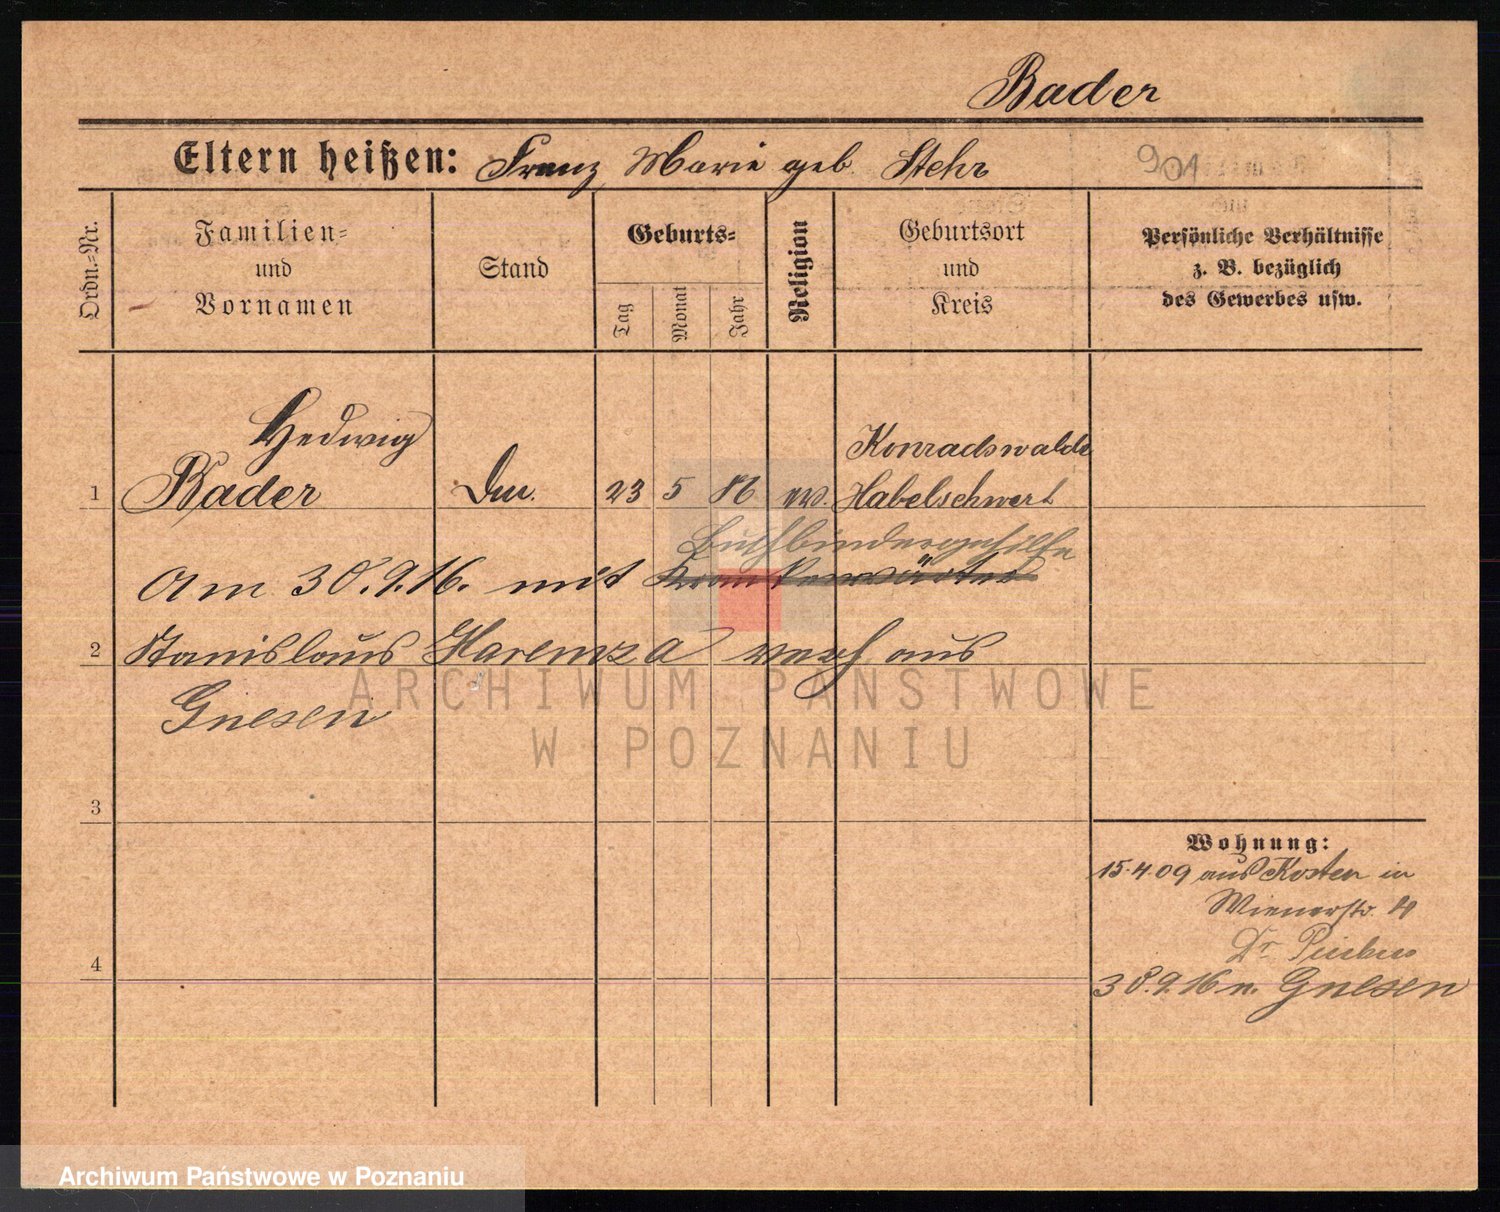 Bader
Eltern heißen: Franz Marie geb Stehr
901
Ordn.-Nr.
Familien-
und
Vornamen
Stand
Geburts-
Tag
Monat
Jahr
Religion
Geburtsort
und
Kreis
Persönliche Verhältnisse
z. B. bezüglich
des Gewerbes usw.
Hedwig
Konradswalde
1 Bader 23 5 Habelschwert
Buchbindergehilfe
Am 30.9.16. mit Krankenwärter
2 Stanislaus Harenza verh aus
Gnesen
ARCHIWUM PAŃSTWOWE
W POZNANIU
3
Wohnung:
15.4.09 aus Kosten in
Wienerstr.
Dr
4
30.9.16 n. Gnesen
Archiwum Państwowe w Poznaniu